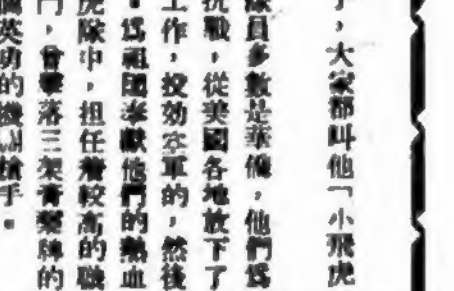 ，大家都叫他「小飛虎
隊員多數是華僑，他們爲
抗戰，從美國各地放下了
工作，投効空軍的，然後
。爲祖國奉獻他們的熱血
虎隊中，担任着較高的職
，曾擊落三架膏藥牌的
英勇的機關槍手。